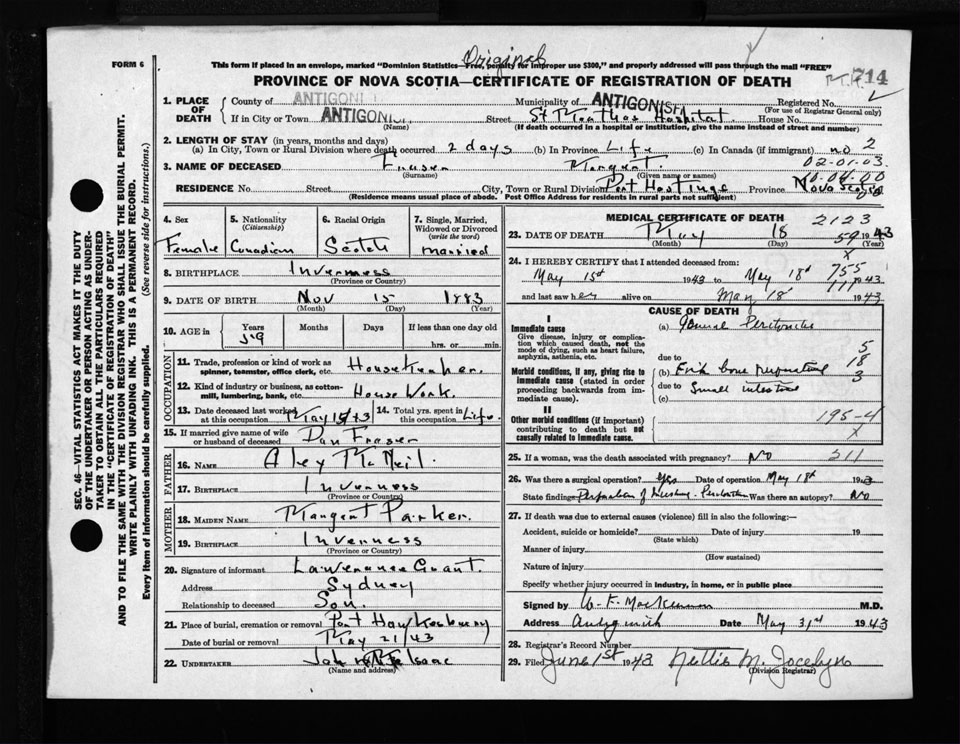 FORM 6
Original
This form if placed in an envelope, marked "Dominion Statistics—Free, penalty for improper use $300," and properly addressed will pass through the mail "FREE"
PROVINCE OF NOVA SCOTIA—CERTIFICATE OF REGISTRATION OF DEATH
714
1. PLACE OF DEATH
County of ANTIGONI Municipality of ANTIGONISH Registered No.
(For use of Registrar General only)
If in City or Town ANTIGONIS Street St Marthas Hospital. House No.
(Name) (If death occurred in a hospital or institution, give the name instead of street and number)
2. LENGTH OF STAY (in years, months and days)
(a) In City, Town or Rural Division where death occurred 2 days (b) In Province Life (c) In Canada (if immigrant) no 2
02-01-03.
3. NAME OF DECEASED Fraser Margaret
(Surname) (Given name or names)
10-04-00
RESIDENCE No. Street City, Town or Rural Division Port Hastings Province Nova Scotia
(Residence means usual place of abode. Post Office Address for residents in rural parts not sufficient)
4. Sex
Female
5. Nationality
(Citizenship)
Canadian
6. Racial Origin
Scotch
7. Single, Married, Widowed or Divorced
(write the word)
married
8. BIRTHPLACE Inverness
(Province or Country)
9. DATE OF BIRTH Nov 15 1883
(Month) (Day) (Year)
10. AGE in
Years Months Days If less than one day old
59 hrs. or min.
OCCUPATION
11. Trade, profession or kind of work as spinner, teamster, office clerk, etc. Housekeeper.
12. Kind of industry or business, as cotton-mill, lumbering, bank, etc. House Work.
13. Date deceased last worked at this occupation May 15/43
14. Total yrs. spent in this occupation Life.
15. If married give name of wife or husband of deceased Dan Fraser
FATHER
16. NAME Alex McNeil.
17. BIRTHPLACE Inverness
(Province or Country)
MOTHER
18. MAIDEN NAME Margaret Parker.
19. BIRTHPLACE Inverness
(Province or Country)
20. Signature of informant Lawerance Grant.
Address Sydney
Relationship to deceased Son.
21. Place of burial, cremation or removal Port Hawkesbury
Date of burial or removal May 21/43
22. UNDERTAKER John Isaac
(Name and address)
MEDICAL CERTIFICATE OF DEATH 2123
23. DATE OF DEATH May 18 1943
(Month) (Day) (Year)
59
x
24. I HEREBY CERTIFY that I attended deceased from:
May 15th 1943 to May 18th 1943
755
111
and last saw her alive on May 18th 1943
CAUSE OF DEATH
I
Immediate cause
Give disease, injury or complication which caused death, not the mode of dying, such as heart failure, asphyxia, asthenia, etc.
(a) General Peritonitis
due to
Morbid conditions, if any, giving rise to Immediate cause (stated in order proceeding backwards from immediate cause).
(b) Fish bone perforating
due to small intestine
(c)
5
18
3
II
Other morbid conditions (if important) contributing to death but not causally related to immediate cause.
195-4
x
25. If a woman, was the death associated with pregnancy? No 211
26. Was there a surgical operation? yes Date of operation May 18th 1943
State findings Perforation of Peritonitis Was there an autopsy? No
27. If death was due to external causes (violence) fill in also the following:—
Accident, suicide or homicide? Date of injury 19
(State which)
Manner of injury
(How sustained)
Nature of injury
Specify whether injury occurred in industry, in home, or in public place
Signed by W. F. MacKinnon M.D.
Address Antigonish Date May 31st 1943
28. Registrar's Record Number
29. Filed June 1st 1943 Nettie M. Jocelyn
(Division Registrar)
SEC. 46—VITAL STATISTICS ACT MAKES IT THE DUTY
OF THE UNDERTAKER OR PERSON ACTING AS UNDER-
TAKER TO OBTAIN ALL THE PARTICULARS REQUIRED
IN THE "CERTIFICATE OF REGISTRATION OF DEATH"
AND TO FILE THE SAME WITH THE DIVISION REGISTRAR WHO SHALL ISSUE THE BURIAL PERMIT.
WRITE PLAINLY WITH UNFADING INK. THIS IS A PERMANENT RECORD.
Every item of information should be carefully supplied. (See reverse side for instructions.)